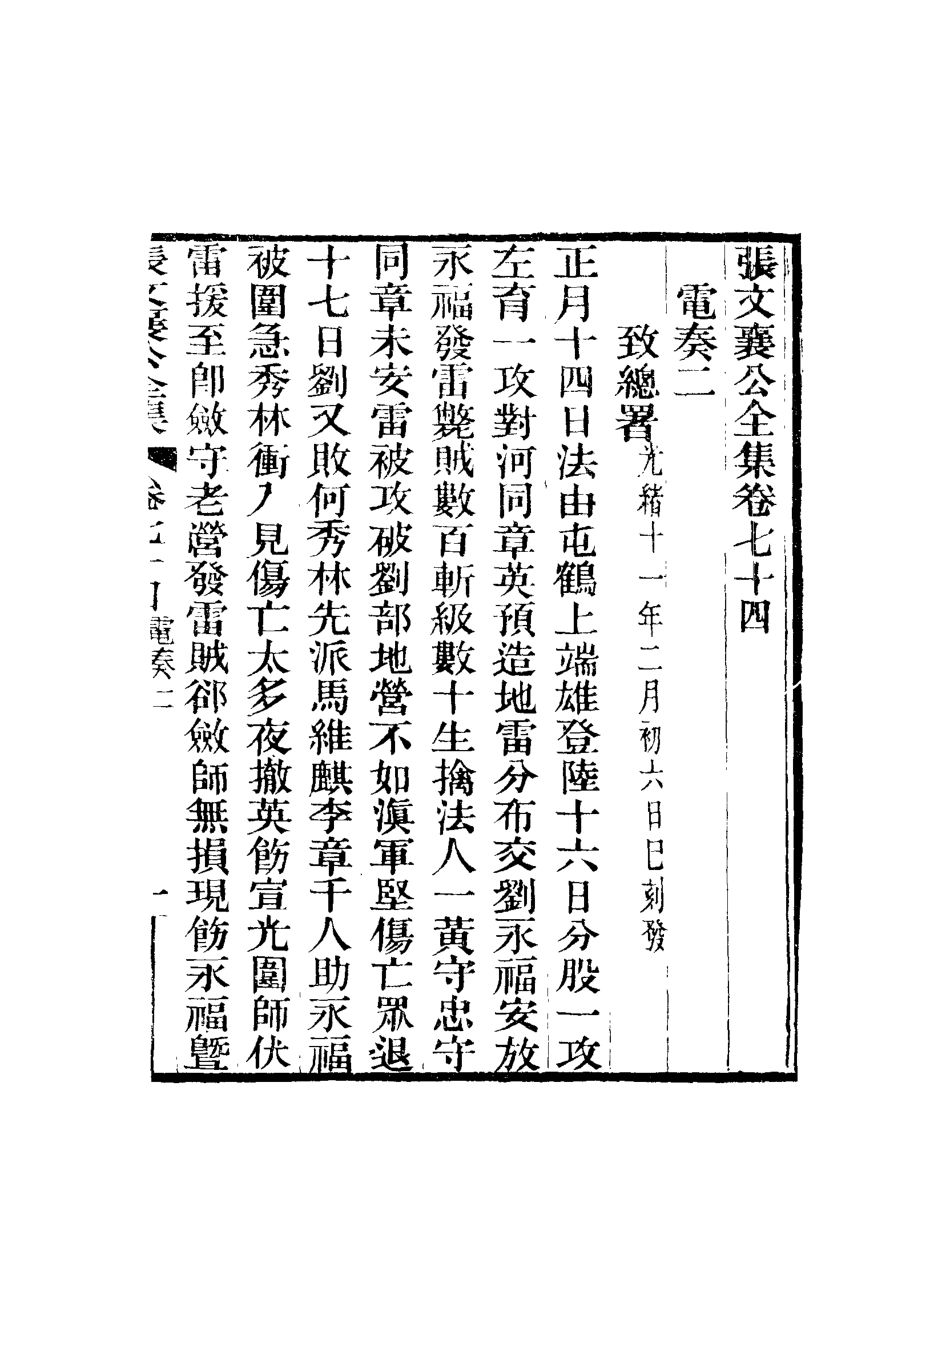 張文襄公全集卷七十四
電奏二
致總署光緒十一年二月初六日巳刻發
正月十四日法由屯鶴上端雄登陸十六日分股一攻
左育一攻對河同章英預造地雷分布交劉永福安放
永福發雷斃賊數百斬級數十生擒法人一黃守忠守
同章未安雷被攻破劉部地營不如滇軍堅傷亡眾退
十七日劉又敗何秀林先派馬維麒李章千人助永福
被圍急秀林衝入見傷亡太多夜撤英飭宣光圍師伏
雷援至卽斂守老營發雷賊卻斂師無損現飭永福曁
張文襄公全集 卷七十四 電奏二 一